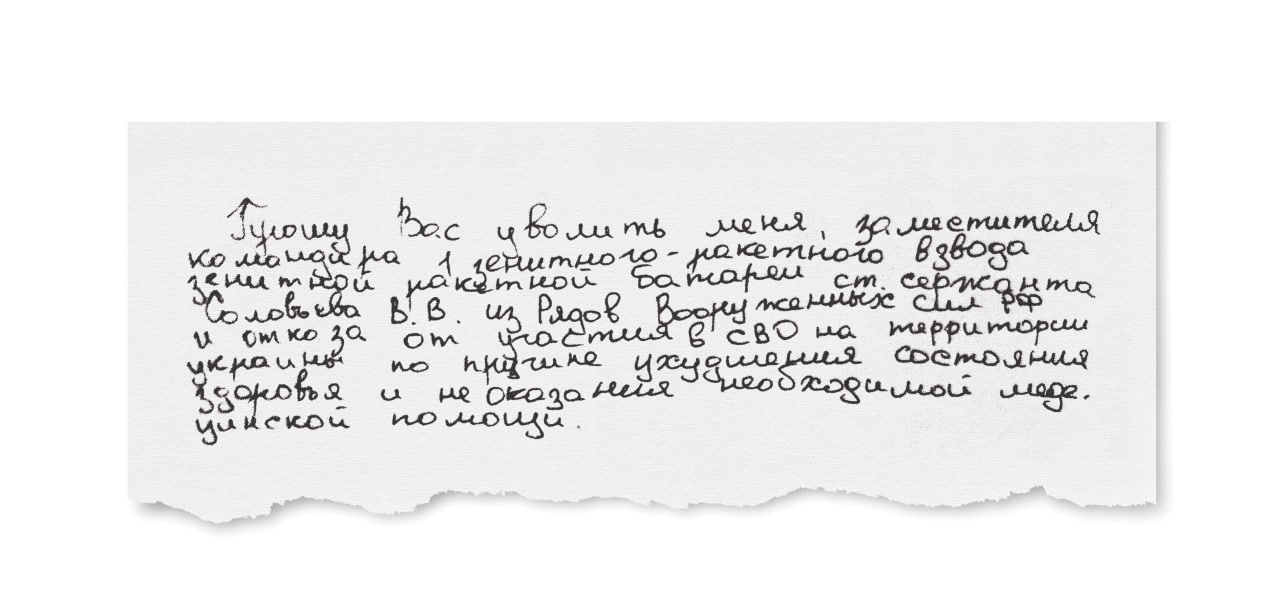 Прошу Вас уволить меня, заместителя
командира 1 зенитного-ракетного взвода
зенитной ракетной батареи ст. сержанта
Соловьева В.В. из Рядов Вооруженных Сил РФ
и откоза от участия в СВО на территории
украины по причине ухудшения состояния
здоровья и не оказания необходимой меди-
цинской помощи.